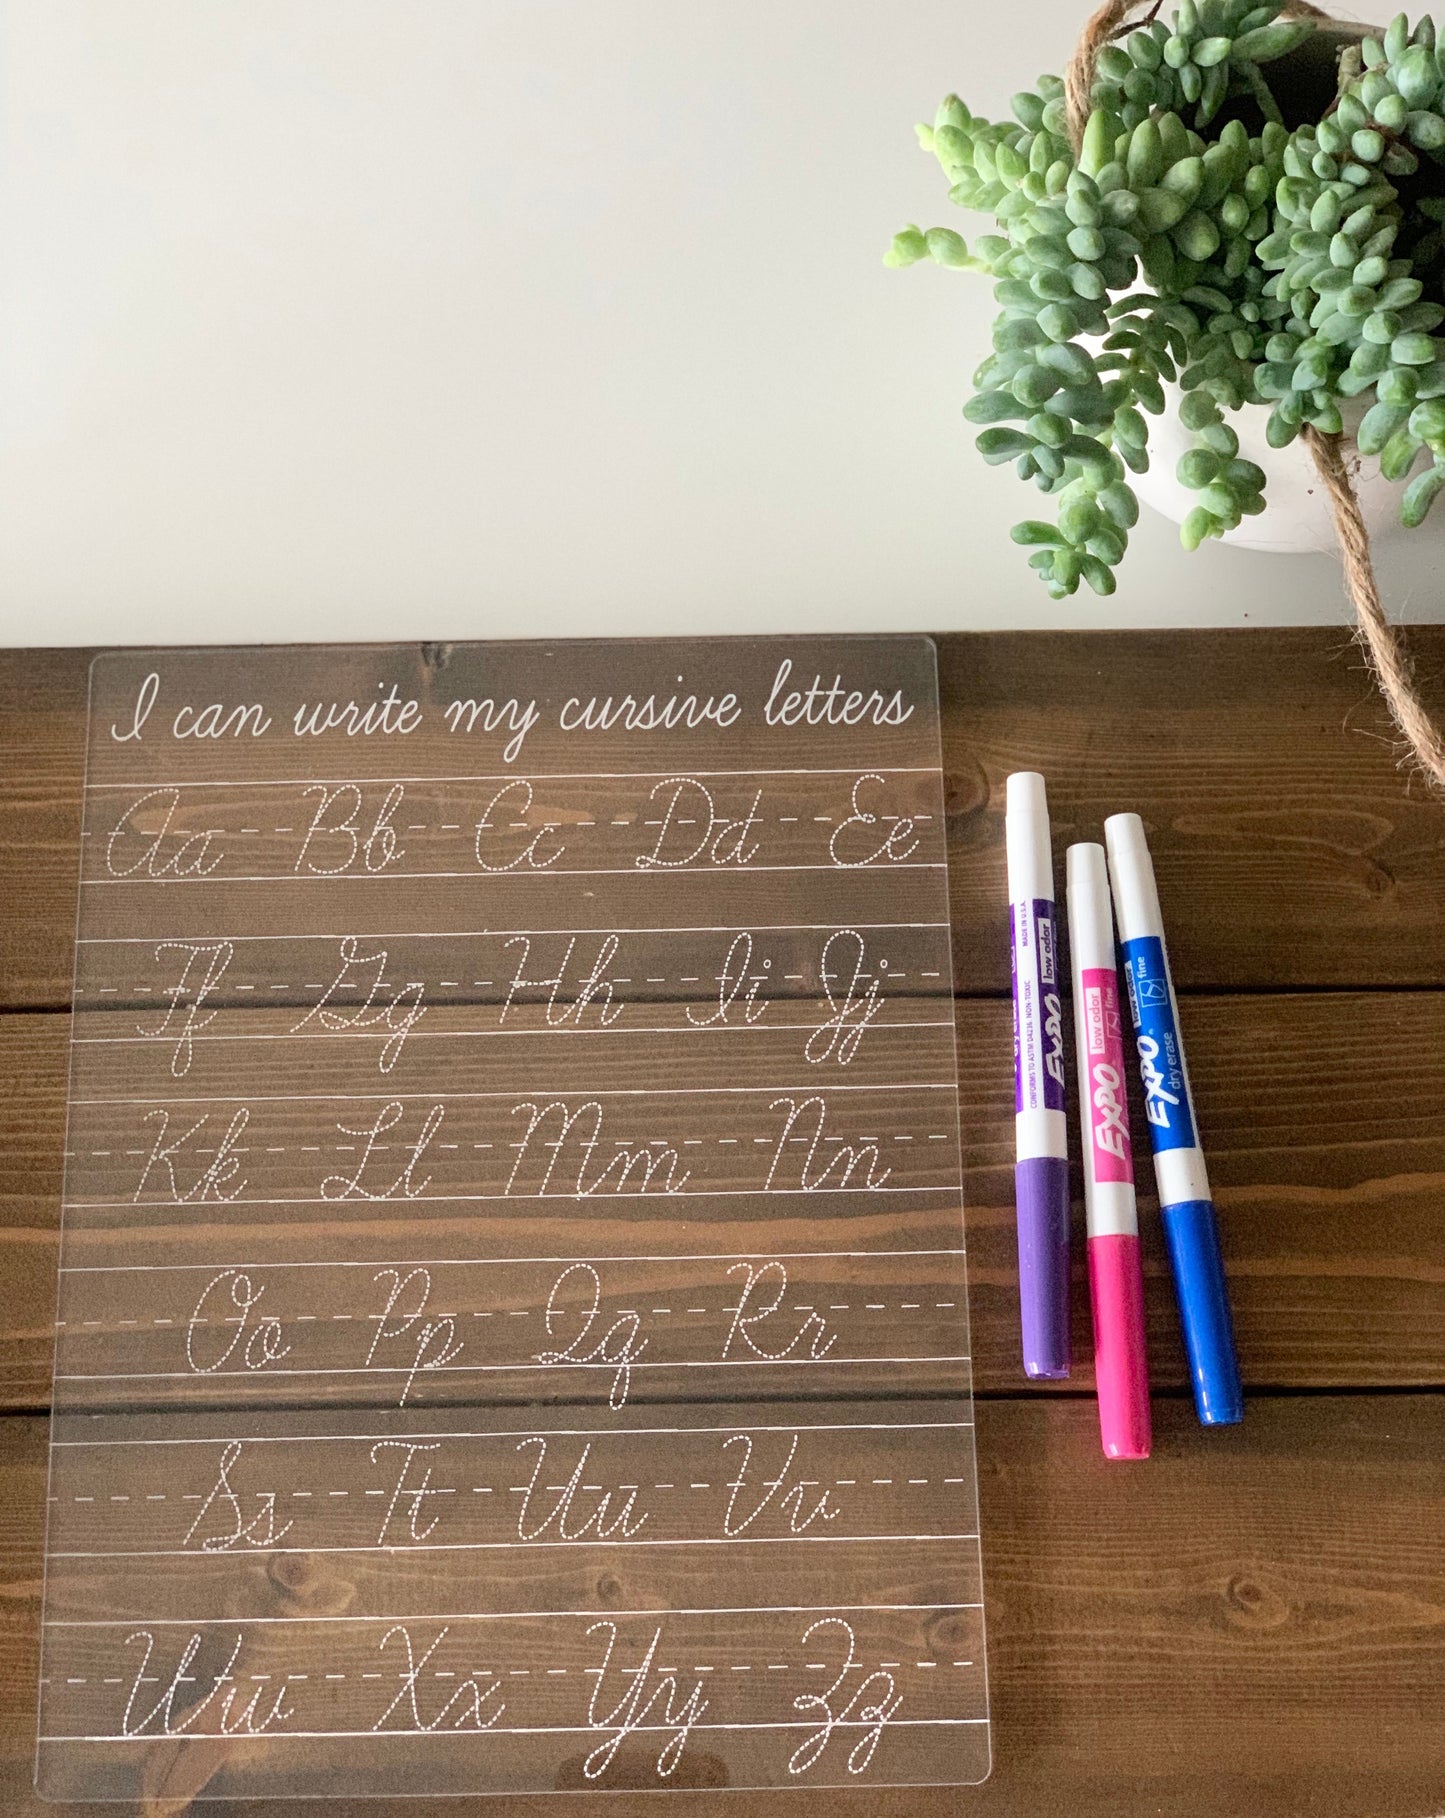 I can write my cursive letters
Aa Bb Cc Dd Ee
Ff Gg Hh Ii Jj
Kk Ll Mm Nn
Oo Pp Qq Rr
Ss Tt Uu Vv
Ww Xx Yy Zz
MADE IN U.S.A.
CONFORMS TO ASTM D4236 NON-TOXIC
EXPO low odor
EXPO low odor fine
EXPO low odor dry erase fine